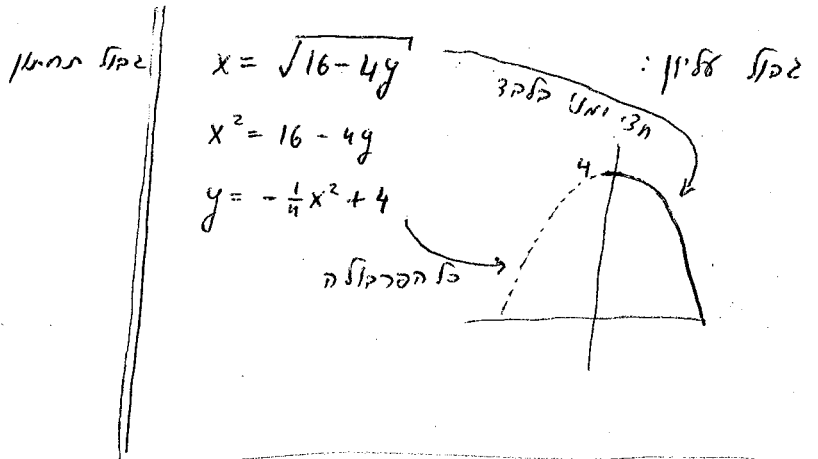 גבול עליון :
x = √(16 - 4y)
חצי ימני בלבד
x² = 16 - 4y
y = -¼x² + 4
כל הפרבולה
4
גבול תחתון